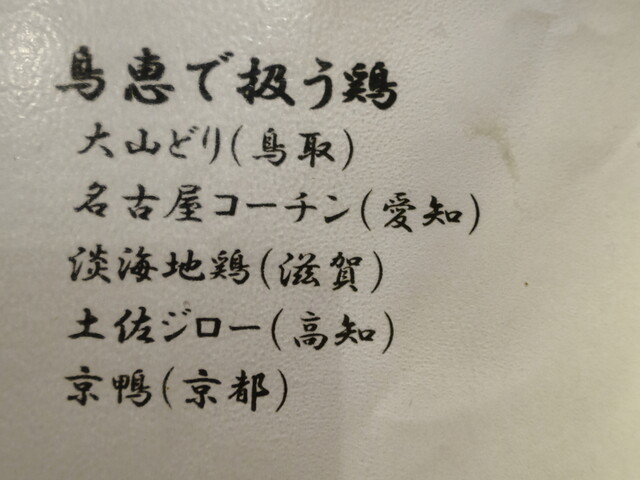 鳥恵で扱う鶏
大山どり(鳥取)
名古屋コーチン(愛知)
淡海地鶏(滋賀)
土佐ジロー(高知)
京鴨(京都)